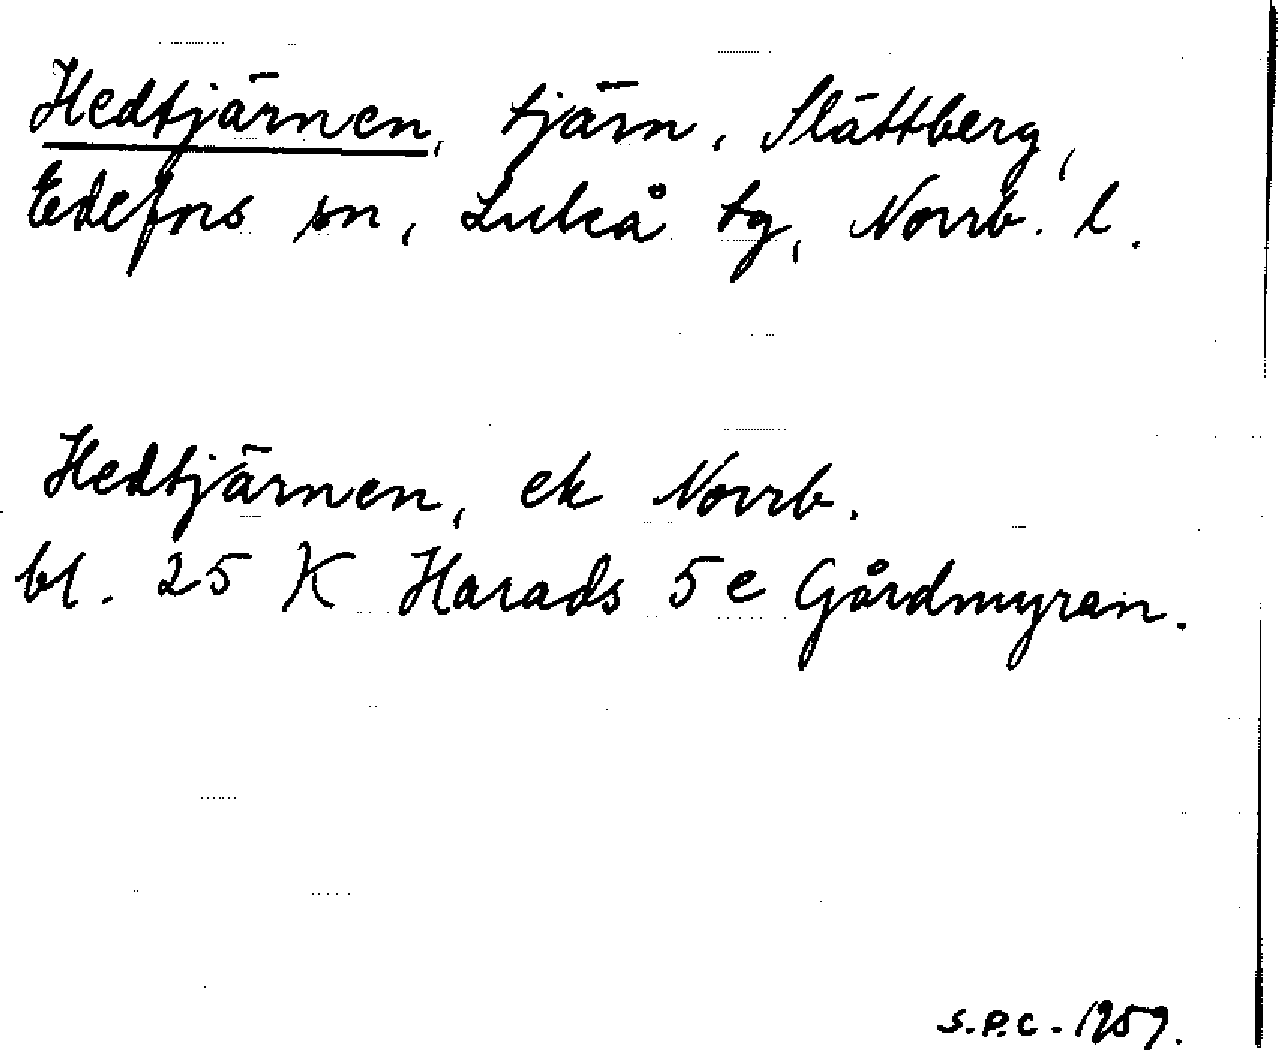 Hedtjärnen, tjärn, Slättberg,
Edefors sn, Luleå tg, Norrb. l.
Hedtjärnen, ek Norrb.
bl. 25 K Harads 5e Gårdmyran.
S.P.C. 1959.